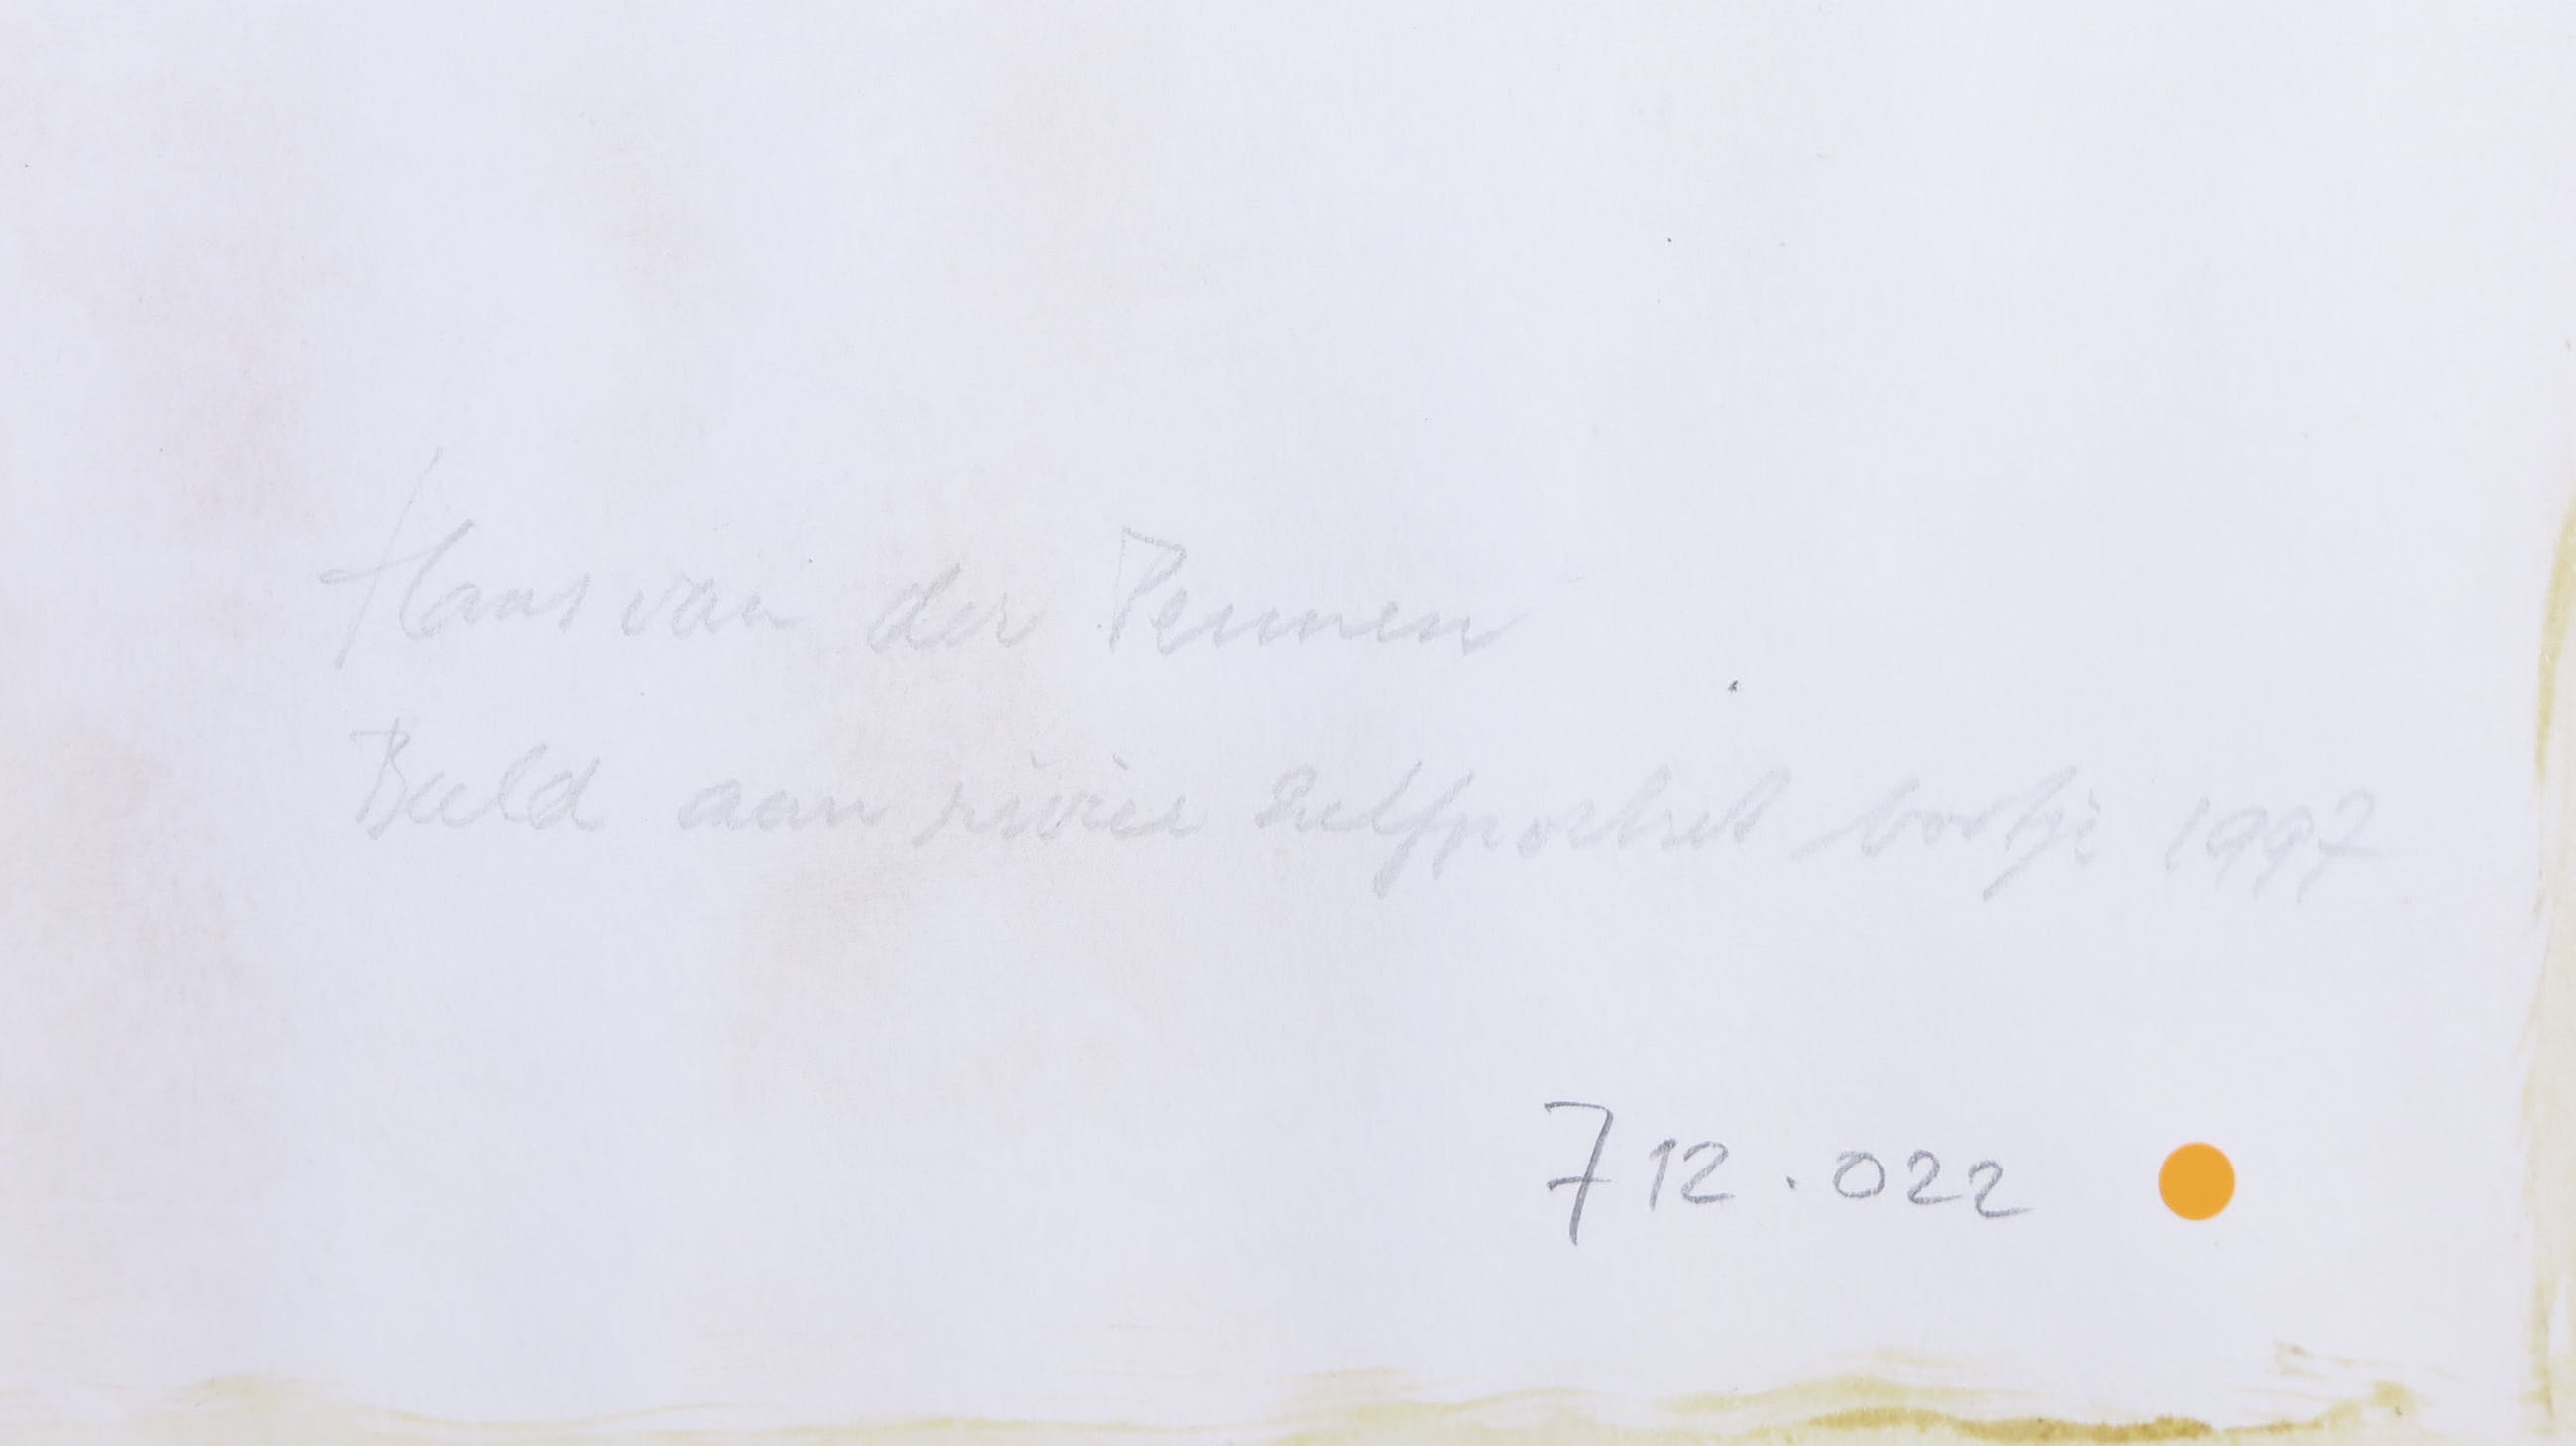 Hans van der Pennen
Beeld aan rivier zelfportret bootje 1997
712.022